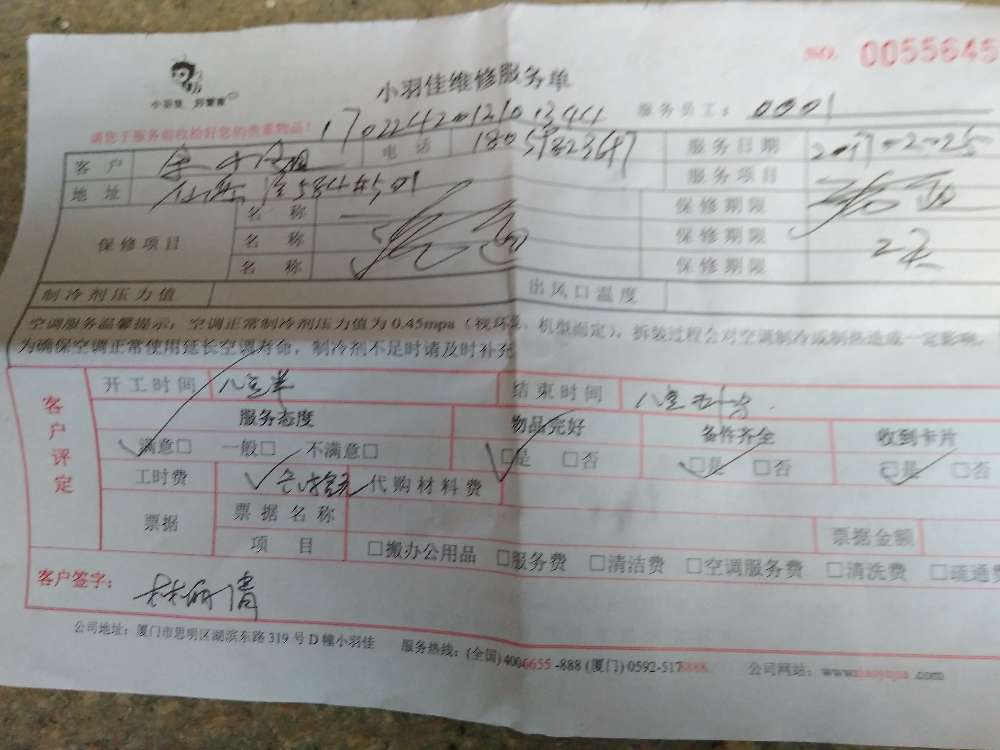 NO. 0055645
小羽佳维修服务单
小羽佳 好管家
服务员工： 0001
请您于服务前收检好您的贵重物品！
客户 电话 服务日期 2017-02-25
地址 服务项目
保修项目 名称 保修期限
名称 保修期限
名称 保修期限
制冷剂压力值 出风口温度
空调服务温馨提示：空调正常制冷剂压力值为0.45mpa（视环境、机型而定），拆装过程会对空调制冷或制热造成一定影响。
为确保空调正常使用延长空调寿命，制冷剂不足时请及时补充
客户评定
开工时间 结束时间
服务态度 物品完好 备件齐全 收到卡片
满意□ 一般□ 不满意□ □是 □否 □是 □否 □是 □否
工时费 代购材料费
票据 票据名称 票据金额
项目 □搬办公用品 □服务费 □清洁费 □空调服务费 □清洗费 □疏通费
客户签字：
公司地址：厦门市思明区湖滨东路319号D幢小羽佳 服务热线：(全国)4006655-888 (厦门)0592-5178888 公司网站：www.xiaoyujia.com